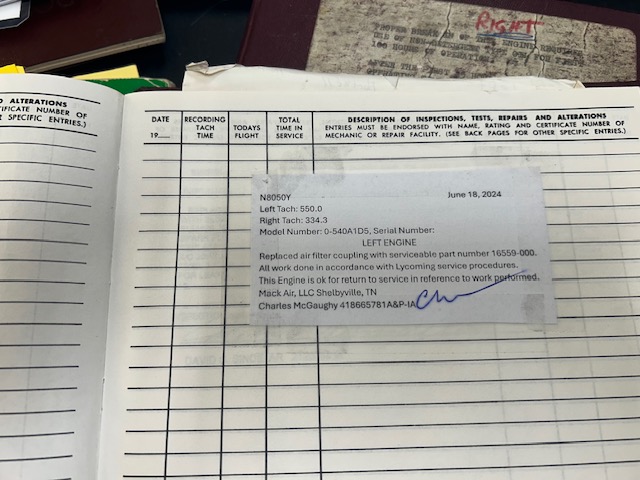 RIGHT
PROPER BREAK IN OF THIS ENGINE REQUIRES
100 HOURS OF OPERATION
AFTER THE
D ALTERATIONS
TIFICATE NUMBER OF
R SPECIFIC ENTRIES.)
DATE
19
RECORDING
TACH
TIME
TODAYS
FLIGHT
TOTAL
TIME IN
SERVICE
DESCRIPTION OF INSPECTIONS, TESTS, REPAIRS AND ALTERATIONS
ENTRIES MUST BE ENDORSED WITH NAME, RATING AND CERTIFICATE NUMBER OF
MECHANIC OR REPAIR FACILITY. (SEE BACK PAGES FOR OTHER SPECIFIC ENTRIES.)
N8050Y June 18, 2024
Left Tach: 550.0
Right Tach: 334.3
Model Number: 0-540A1D5, Serial Number:
LEFT ENGINE
Replaced air filter coupling with serviceable part number 16559-000.
All work done in accordance with Lycoming service procedures.
This Engine is ok for return to service in reference to work performed.
Mack Air, LLC Shelbyville, TN
Charles McGaughy 418665781A&P-IA